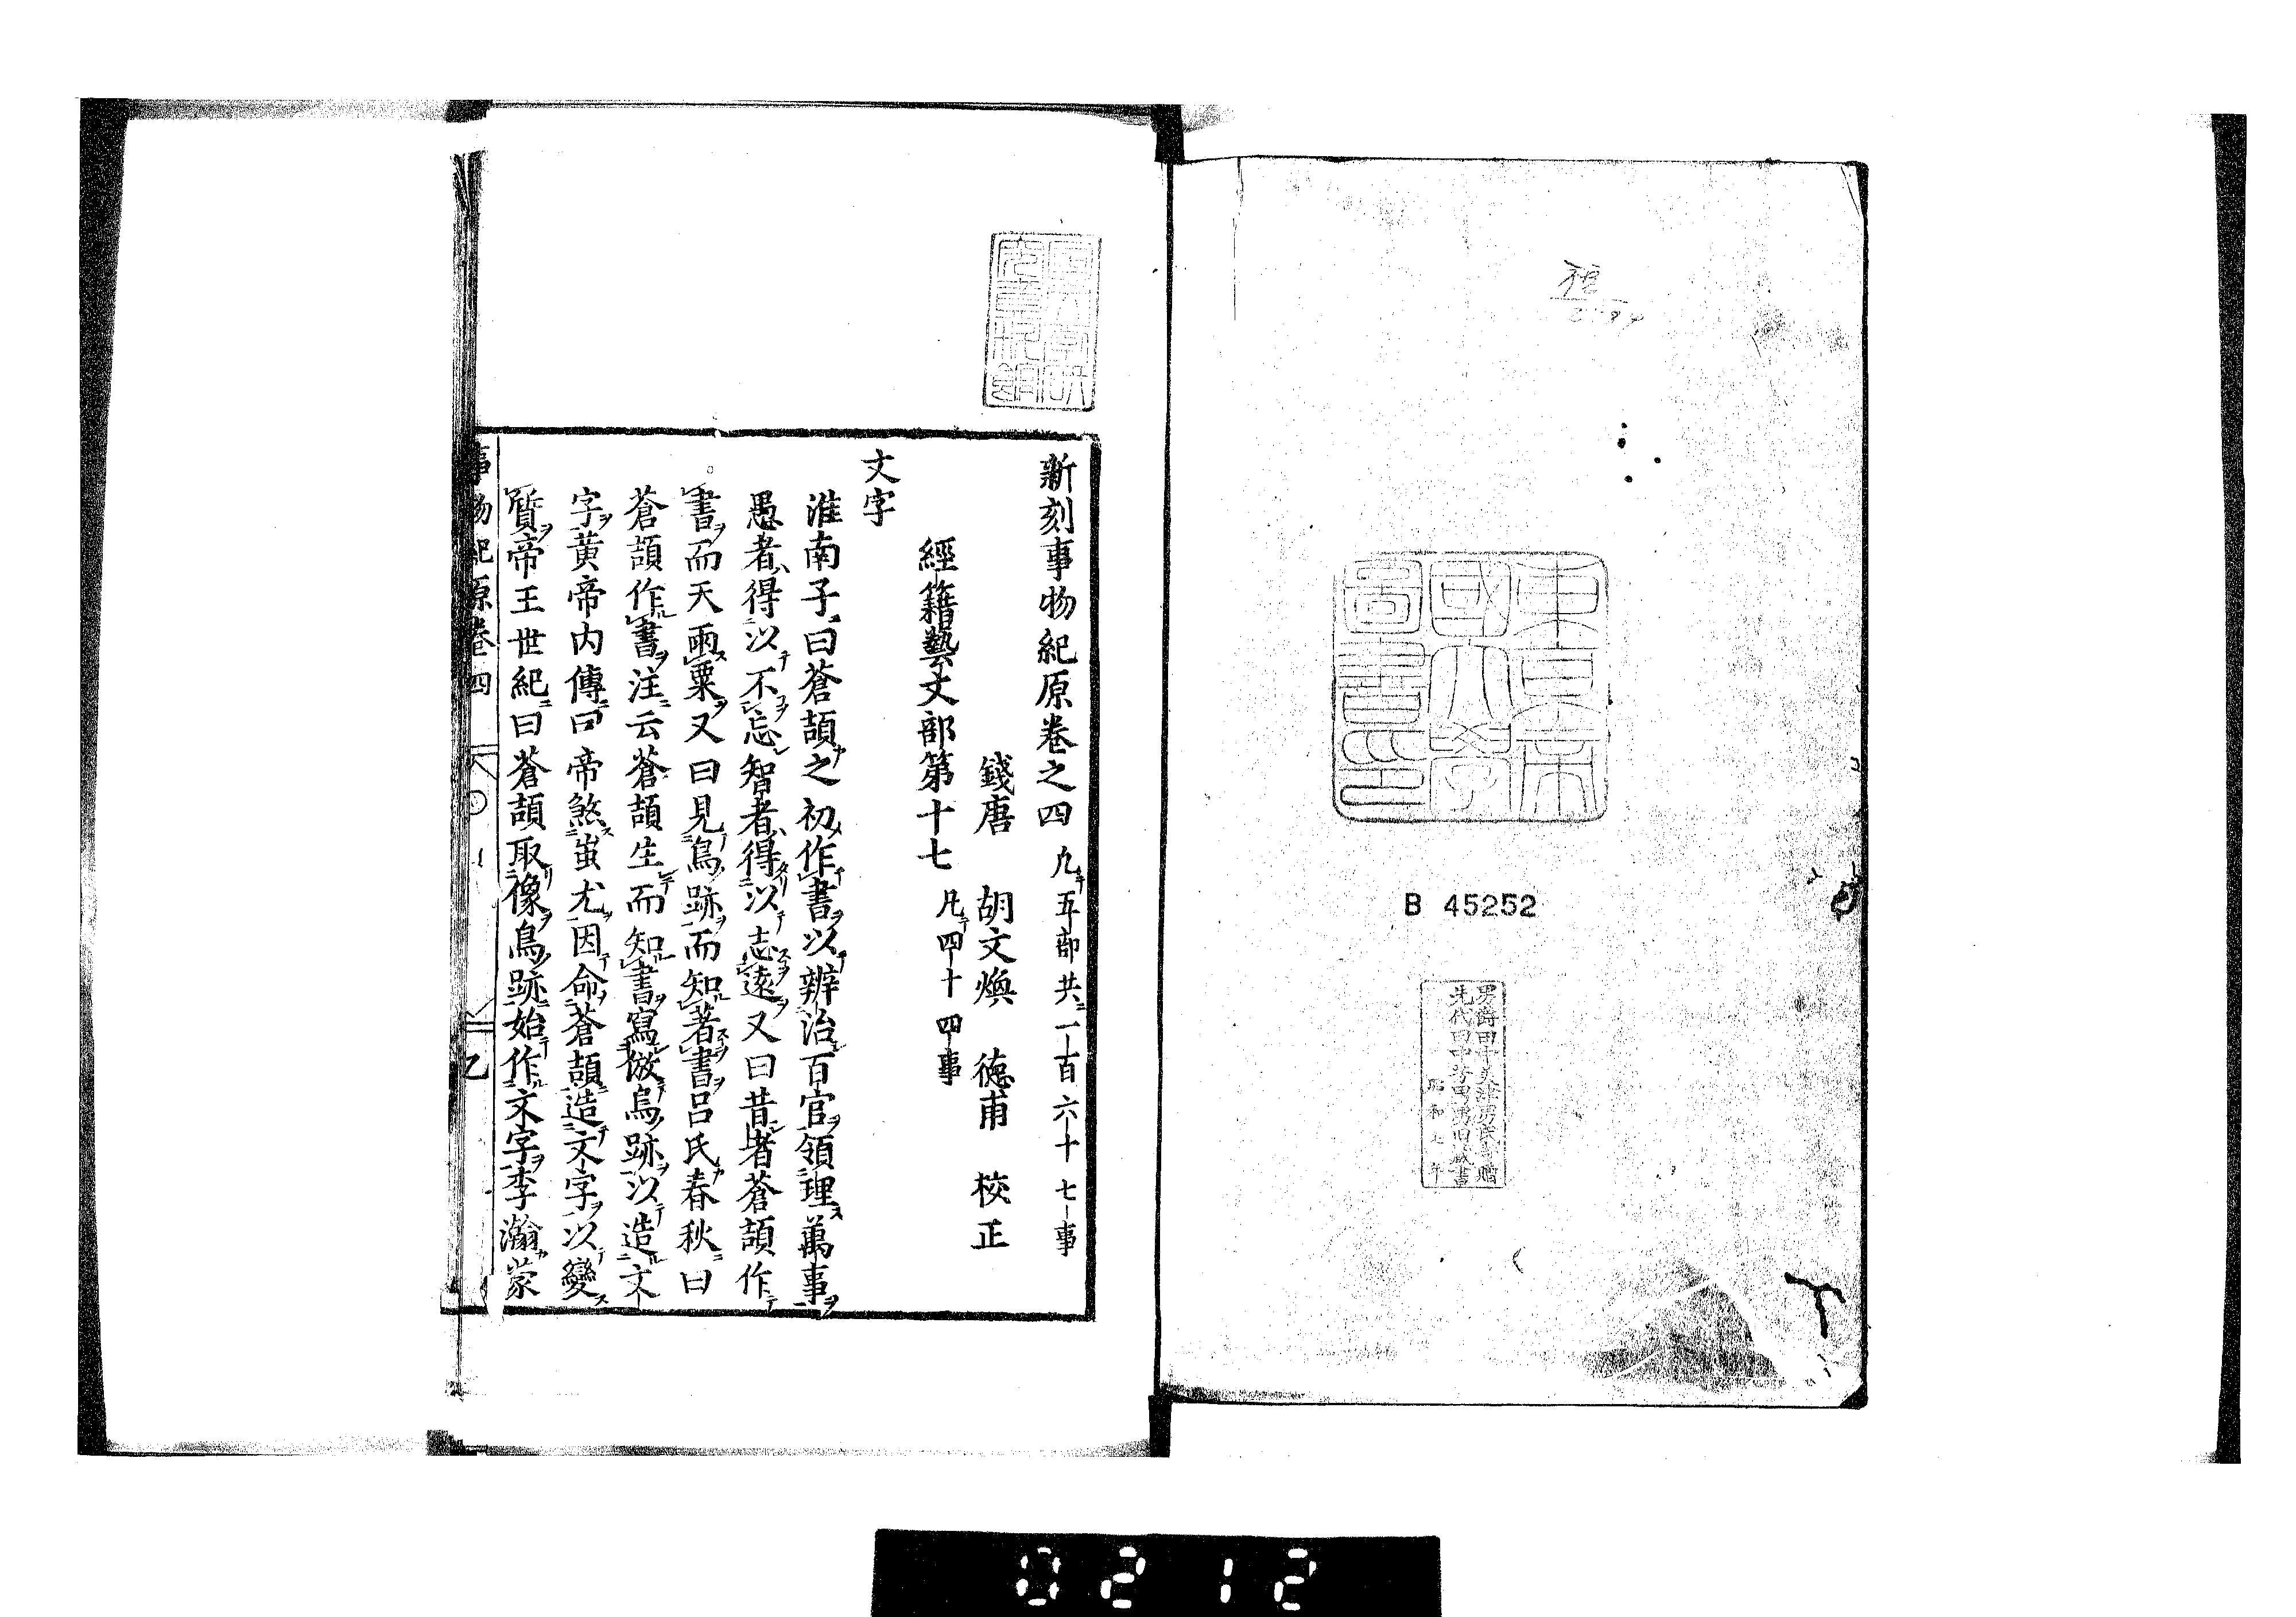 東京帝
國大學
圖書印
B 45252
先代田中芳男男旧蔵書
昭和七年
新刻事物紀原卷之四 凡五部共一百六十七事
錢唐 胡文煥 德甫 校正
經籍藝文部第十七 凡四十四事
文字
淮南子曰蒼頡之初作書以辨治百官領理萬事
愚者得以不忘智者得以志遠又曰昔者蒼頡作
書而天雨粟又曰見鳥跡而知著書呂氏春秋曰
蒼頡作書注云蒼頡生而知書寫倣鳥跡以造文
字黃帝內傳曰帝煞蚩尤因命蒼頡造文字以變
質帝王世紀曰蒼頡取像鳥跡始作文字李瀚蒙
事物紀原卷四
0212